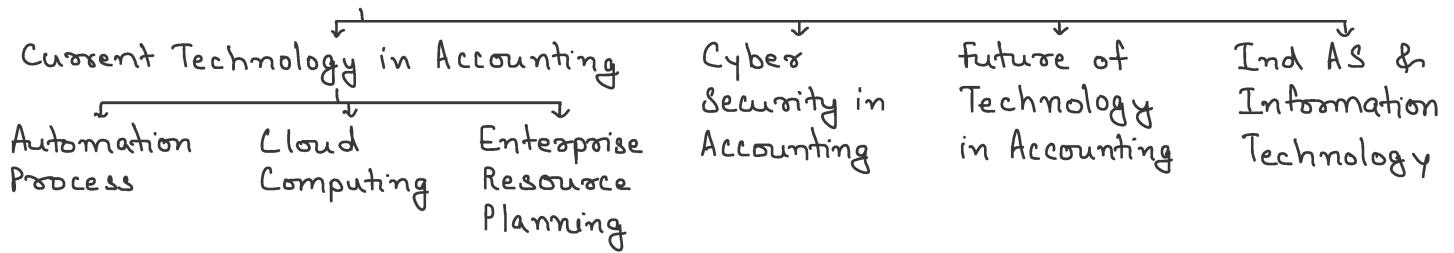 Current Technology in Accounting
Automation
Process
Cloud
Computing
Enterprise
Resource
Planning
Cyber
Security in
Accounting
Future of
Technology
in Accounting
Ind AS &
Information
Technology